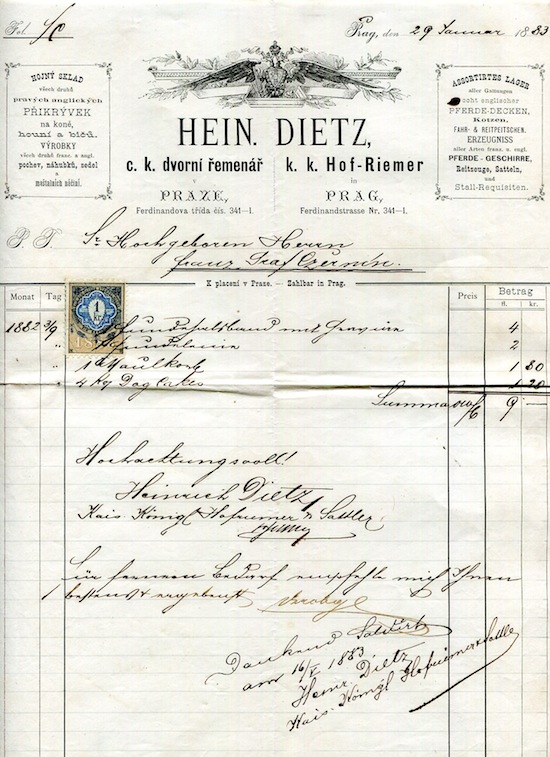 Fol. 1/0
Prag, den 29 Januar 1883
HOJNÝ SKLAD
všech druhů
pravých anglických
PŘIKRÝVEK
na koně,
houní a bičů.
VÝROBKY
všech druhů franc. a angl.
pochev, náhubků, sedel
a
maštalních náčiní.
ASSORTIRTES LAGER
aller Gattungen
echt englischer
PFERDE-DECKEN,
Kotzen,
FAHR- & REITPEITSCHEN.
ERZEUGNISS
aller Arten franz. u. engl.
PFERDE-GESCHIRRE,
Reitzeuge, Satteln,
und
Stall-Requisiten.
HEIN. DIETZ,
c. k. dvorní řemenář k. k. Hof-Riemer
v in
PRAZE, PRAG,
Ferdinandova třída čís. 341—I. Ferdinandstrasse Nr. 341—I.
P. T. Sr Hochgeboren Herrn
Franz Graf Czernin.
K placení v Praze. — Zahlbar in Prag.
Monat Tag Preis Betrag
fl. kr.
1882 3/9 1 Hundehalsband mit Gravure 4
" 1 Hundeleine 2
" 1 Maulkorb 1 80
" 4 Kg Dog Cakes 1 20
Summa 9 —
1 KR.
Hochachtungsvoll!
Heinrich Dietz
Kais. Königl Hofriemer & Sattler
Für ferneren Bedarf empfehle mich Ihnen
bestens & ergebenst
Dankend Saldirt
am 16/V 1883
Heinr. Dietz
Kais. Königl Hofriemer & Sattle